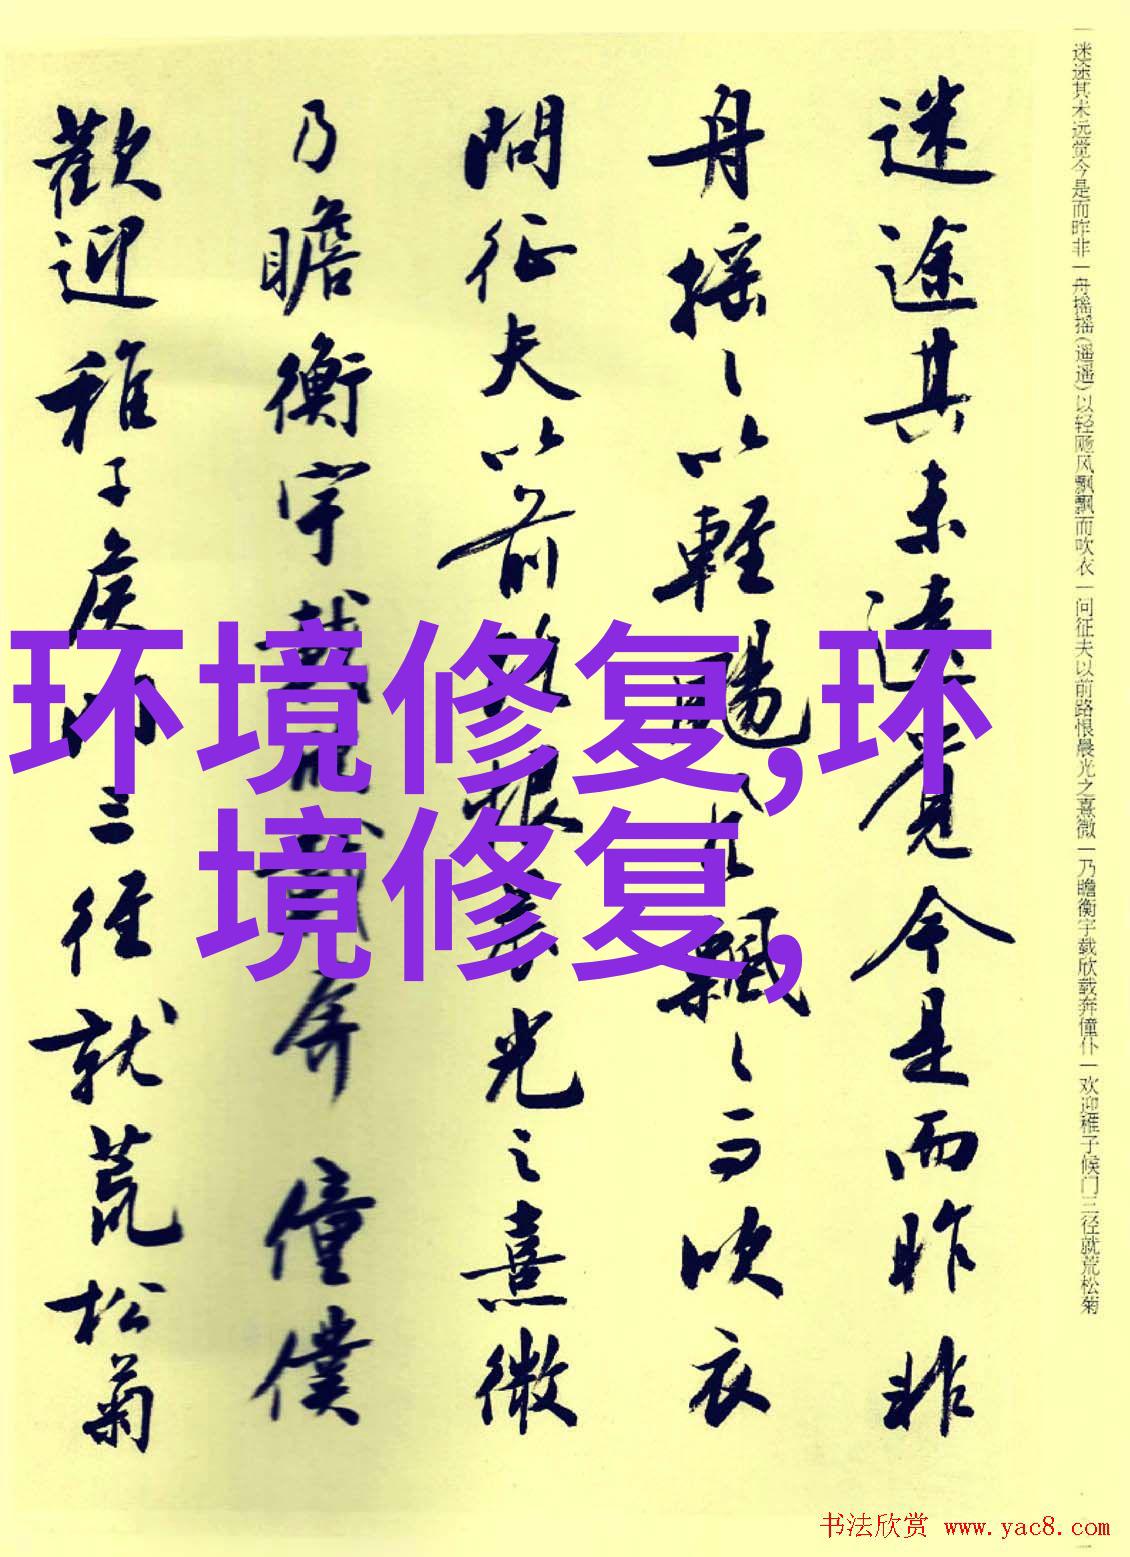 一迷途其未远觉今是而昨非一舟摇摇(遥遥)以轻飏风飘飘而吹衣一问征夫以前路恨晨光之熹微一乃瞻衡宇载欣载奔僮仆一欢迎稚子候门三径就荒松菊
迷途其未遠覺今是而昨非
舟摇〻以輕颺風飄〻而吹衣
問征夫以前路恨晨光之熹微
乃瞻衡宇載欣載奔僮僕
歡迎稚子候門三徑就荒松菊
环境修复,环
境修复,
书法欣赏 www.yac8.com